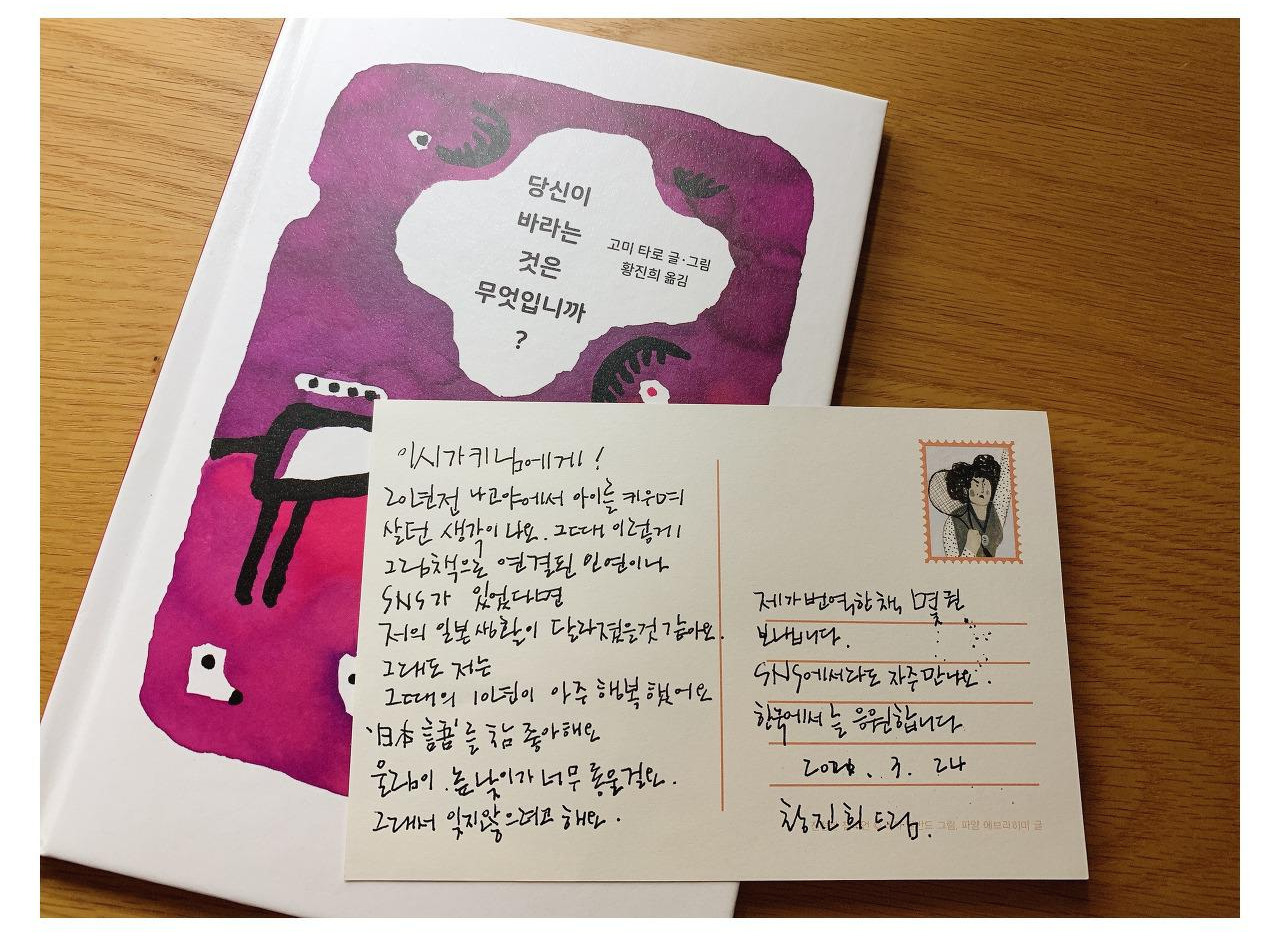 당신이
바라는
것은
무엇입니까
?
고미 타로 글·그림
황진희 옮김
이시가키님에게!
20년전 나고야에서 아이를 키우며
살던 생각이 나요. 그때 이렇게
그림책으로 연결된 인연이나
SNS가 있었다면
저의 일본생활이 달라졌을것 같아요.
그래도 저는
그때의 10년이 아주 행복했어요
'日本語'를 참 좋아해요
울림이. 높낮이가 너무 좋을걸요.
그래서 잊지않으려고 해요.
제가 번역한 책, 몇 권
보냅니다.
SNS에서라도 자주 만나요.
한국에서 늘 응원합니다
3. 24
황진희 드림.
그림, 파얌 에브라히미 글